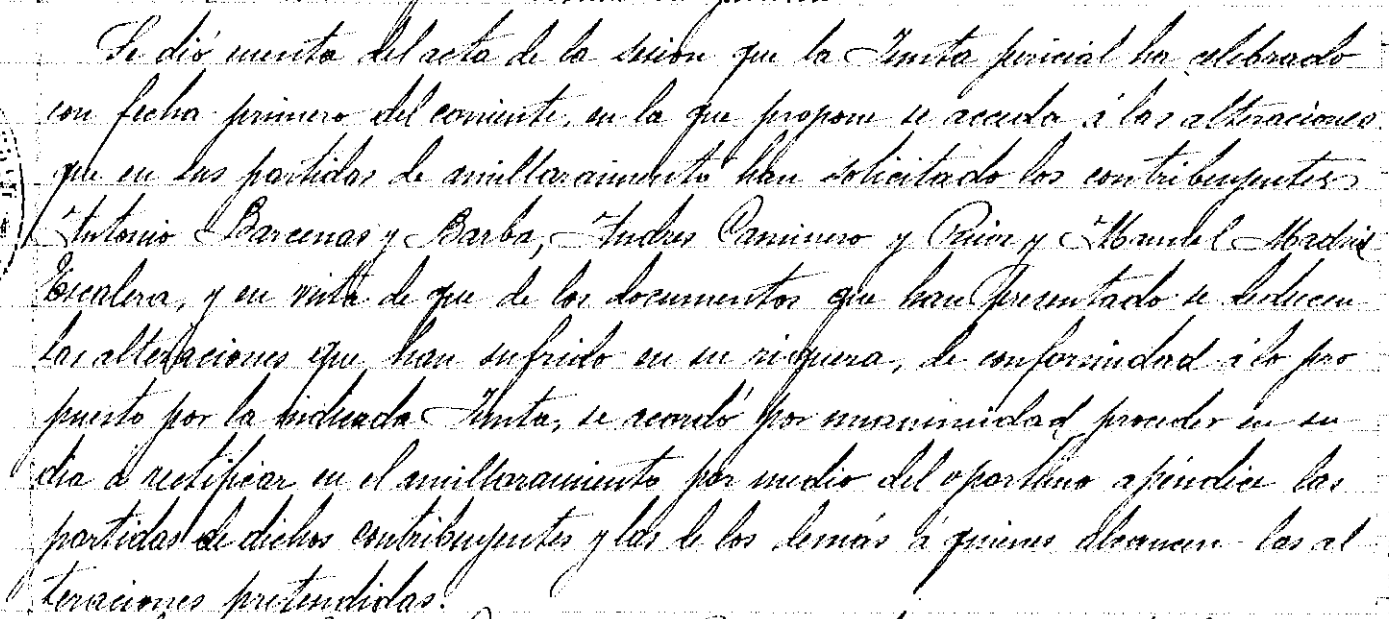 Se dió cuenta del acta de la sesion que la Junta pericial ha celebrado
con fecha primero del corriente, en la que propone se acceda á las alteraciones
que en sus partidas de amillaramiento han solicitado los contribuyentes
Antonio Barcenas y Barba, Andres Caminero y y Manuel Madrid
Escalera, y en vista de que de los documentos que han presentado se deducen
las alteraciones que han sufrido en su riqueza, de conformidad á lo pro
puesto por la indicada Junta, se acordó por unanimidad proceder en su
dia á rectificar en el amillaramiento por medio del oportuno apéndice las
partidas de dichos contribuyentes y las de los demás á quienes alcancen las al
teraciones pretendidas.